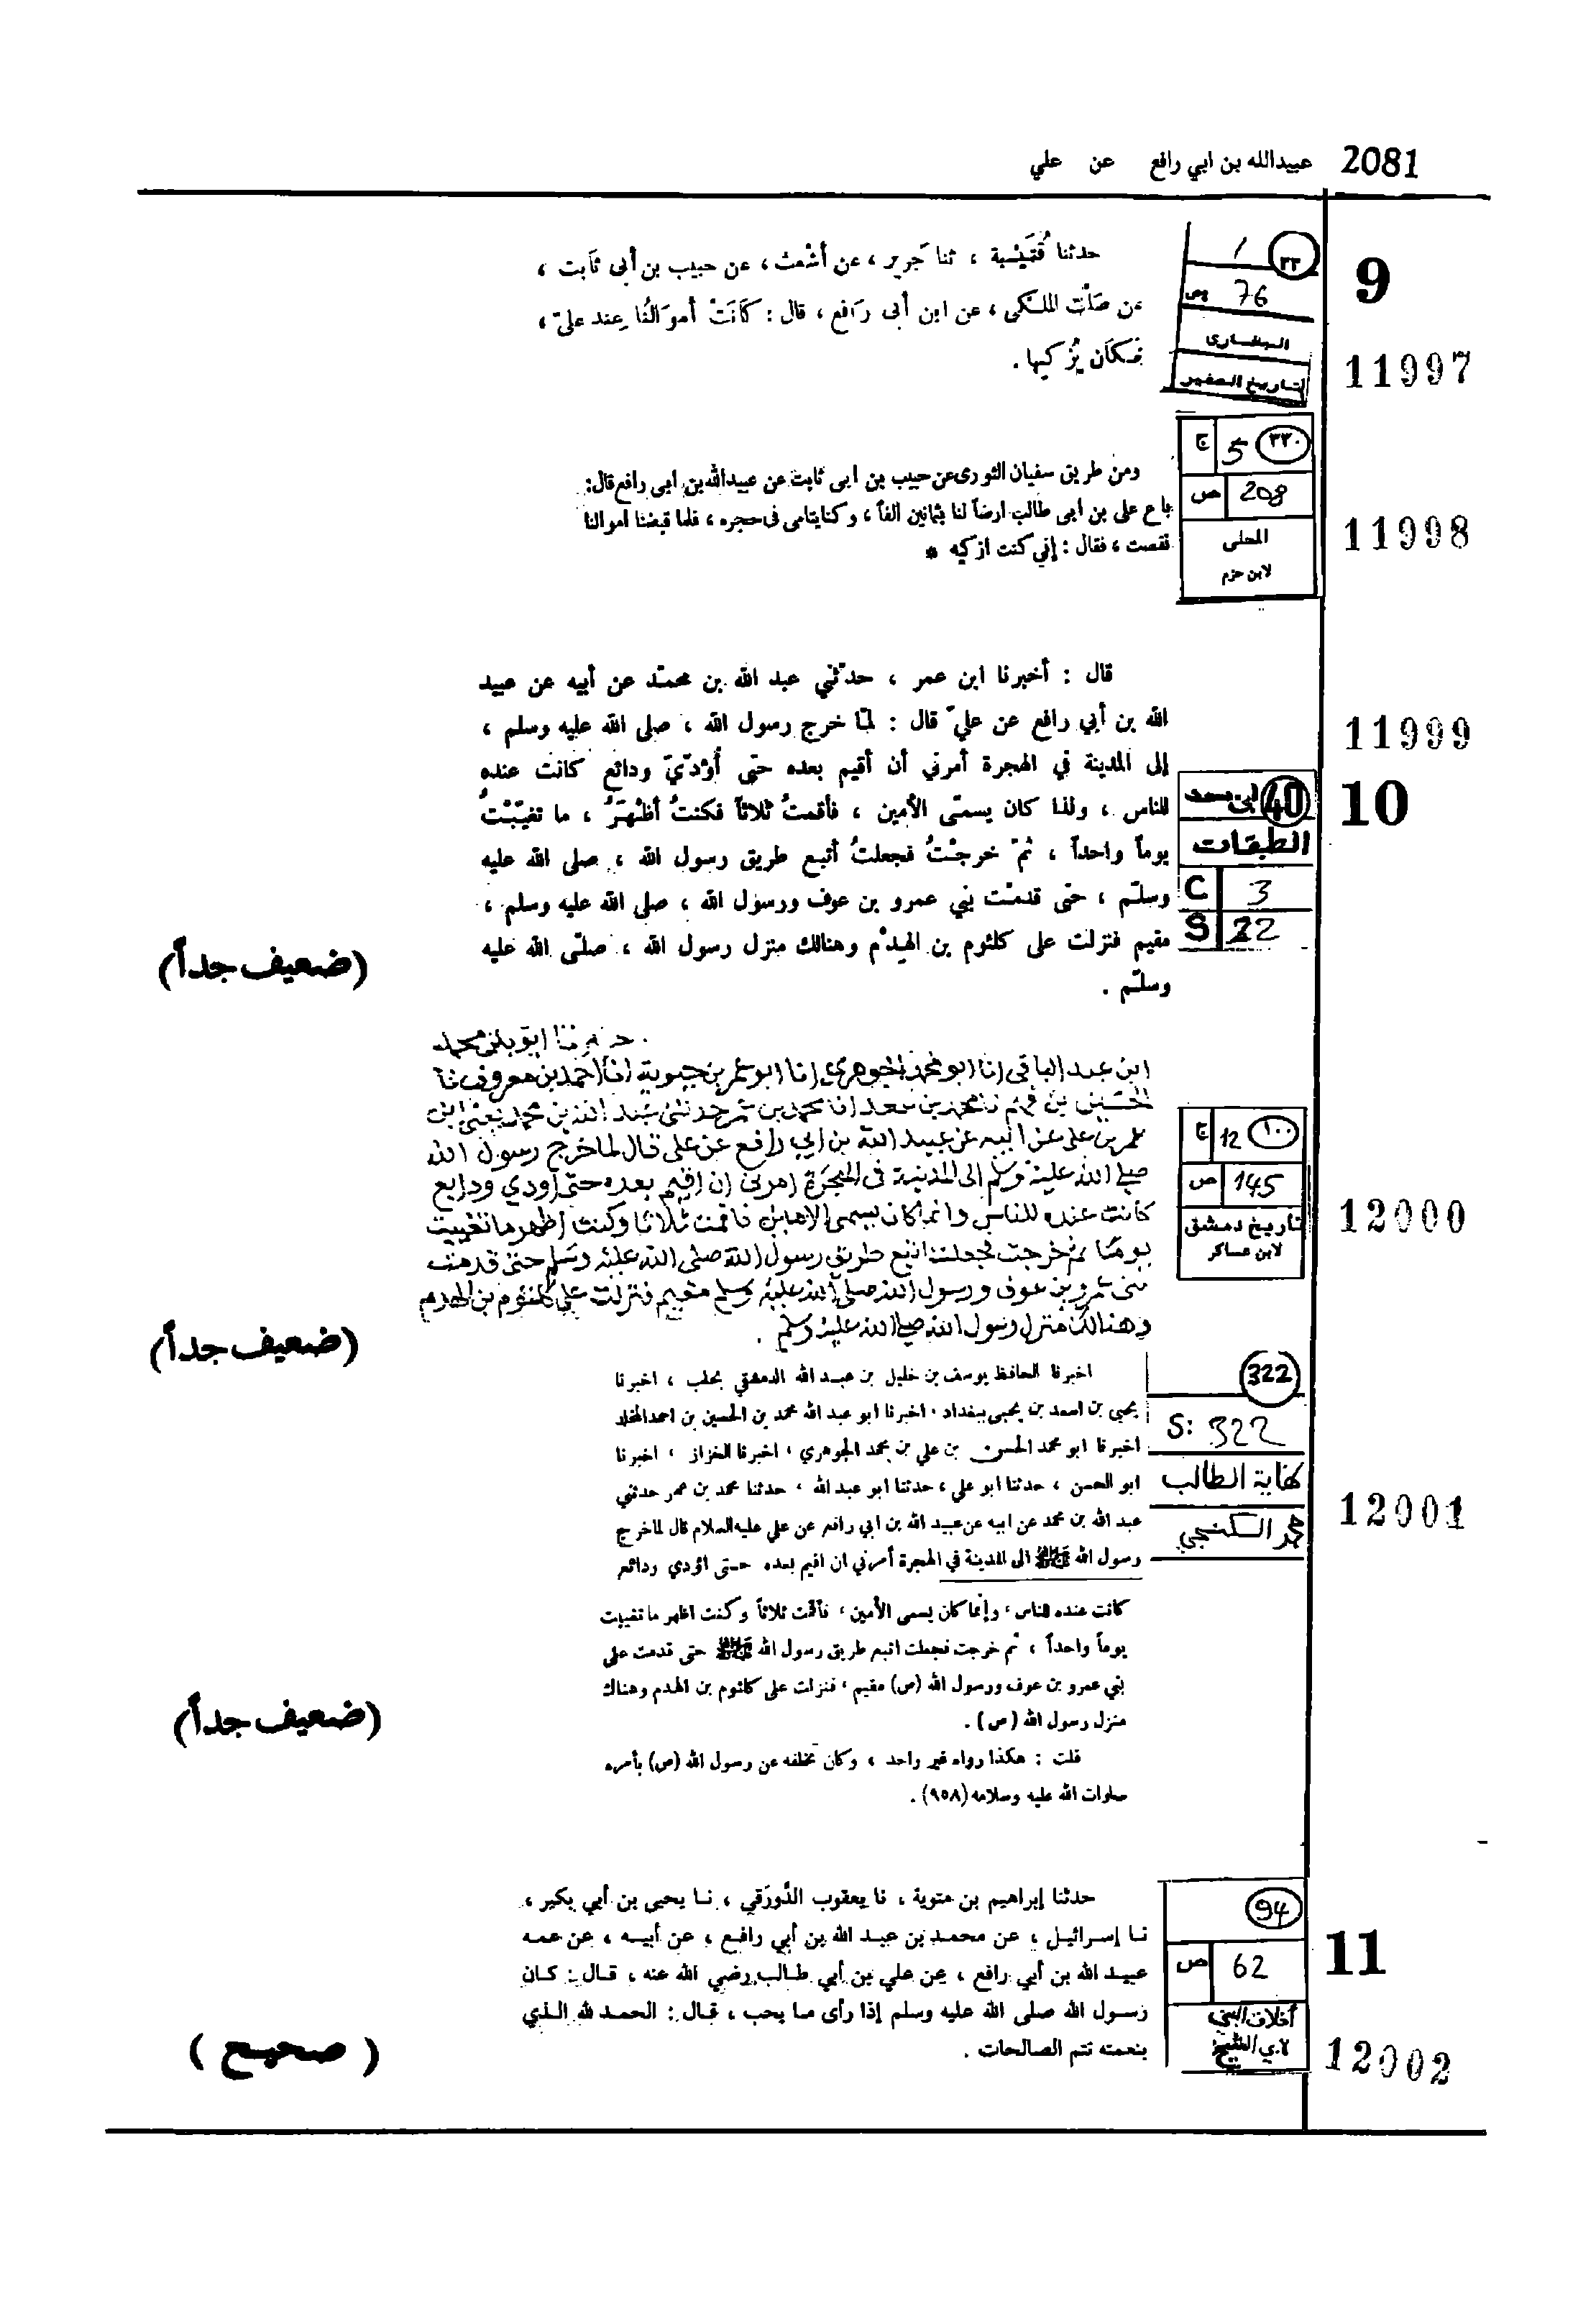 2081 عبيدالله بن ابي رافع عن علي
9
11997
٣٣ / 1
76 ص
البخاري
التاريخ الصغير
حدثنا قُتَيْبة ، ثنا جَرير ، عن أشْعث ، عن حبيب بن أبى ثَابت ،
عن صَلْت المكى ، عن ابن أبى رَافع ، قال : كَانَتْ أموَالُنا عِند علىّ ،
فَكَان يُزكيها .
11998
٣٣٠ 5 ج
208 ص
المحلى
لابن حزم
ومن طريق سفيان الثورى عن حبيب بن ابى ثابت عن عبيدالله بن ابى رافع قال:
باع على بن ابى طالب ارضاً لنا بثمانين الفاً ، وكنا يتامى فى حجره ، فلما قبضنا اموالنا
نقصت ، فقال : إني كنت ازكيه *
11999
10
40 ابن سعد
الطبقات
C 3
S 22
قال : أخبرنا ابن عمر ، حدّثني عبد الله بن محمّد عن أبيه عن عبيد
الله بن أبي رافع عن عليّ قال : لمّا خرج رسول الله ، صلى الله عليه وسلم ،
إلى المدينة في الهجرة أمرني أن أقيم بعده حتى أُؤدّيَ ودائع كانت عنده
للناس ، ولذا كان يسمّى الأمين ، فأقمتُ ثلاثاً فكنتُ أظْهَرُ ، ما تغيّبْتُ
يوماً واحداً ، ثمّ خرجْتُ فجعلتُ أتبع طريق رسول الله ، صلى الله عليه
وسلّم ، حتى قدمْت بني عمرو بن عوف ورسول الله ، صلى الله عليه وسلم ،
مقيم فنزلت على كلثوم بن الهِدْم وهنالك منزل رسول الله ، صلّى الله عليه
وسلّم .
(ضعيف جداً)
12000
١٠٠ 12 ج
145 ص
تاريخ دمشق
لابن عساكر
اخبرنا ابو بكر محمد
ابن عبد الباقي انا ابو محمد الجوهري انا ابو عمر بن حيوية انا احمد بن معروف نا
الحسين بن فهم نا محمد بن سعد انا محمد بن عمر حدثني عبد الله بن محمد يعني ابن
عمر بن علي عن ابيه عن عبيد الله بن ابي رافع عن علي قال لما خرج رسول الله
صلى الله عليه وسلم إلى المدينة في الهجرة امرني ان اقيم بعده حتى اودي ودايع
كانت عنده للناس وانما كان يسمى الامين فاقمت ثلاثا وكنت اظهر ما تغيبت
يوما ثم خرجت فجعلت اتبع طريق رسول الله صلى الله عليه وسلم حتى قدمت
بني عمرو بن عوف ورسول الله صلى الله عليه وسلم مقيم فنزلت على كلثوم بن الهدم
وهنالك منزل رسول الله صلى الله عليه وسلم .
(ضعيف جداً)
12001
322
S: 322
كفاية الطالب
محمد الكنجي
اخبرنا الحافظ يوسف بن خليل بن عبد الله الدمشقي بحلب ، اخبرنا
يحيى بن اسعد بن يحيى ببغداد ، اخبرنا ابو عبد الله محمد بن الحسين بن احمد المخلد
اخبرنا ابو محمد الحسن بن علي بن محمد الجوهري ، اخبرنا الخزاز ، اخبرنا
ابو الحسن ، حدثنا ابو علي ، حدثنا ابو عبد الله ، حدثنا محمد بن عمر حدثني
عبد الله بن محمد عن ابيه عن عبيد الله بن ابي رافع عن علي عليه السلام قال لما خرج
رسول الله ﷺ الى المدينة في الهجرة أمرني ان اقيم بعده حتى اؤدي ودائع
كانت عنده للناس ، وإنما كان يسمى الأمين ، فأقمت ثلاثاً وكنت اظهر ما تغيبت
يوماً واحداً ، ثم خرجت فجعلت اتبع طريق رسول الله ﷺ حتى قدمت على
بني عمرو بن عوف ورسول الله (ص) مقيم ، فنزلت على كلثوم بن الهدم وهناك
منزل رسول الله (ص) .
قلت : هكذا رواه غير واحد ، وكان تخلفه عن رسول الله (ص) بأمره
صلوات الله عليه وسلامه (٩٥٨) .
(ضعيف جداً)
11
12002
94
62 ص
أخلاق النبي
لابي الشيخ
حدثنا إبراهيم بن متوية ، نا يعقوب الدَّورَقي ، نـا يحيى بن أبي بكير ،
نـا إسرائيل ، عن محمد بن عبد الله بن أبي رافع ، عن أبيه ، عن عمه
عبيد الله بن أبي رافع ، عن علي بن أبي طالب رضي الله عنه ، قال : كان
رسول الله صلى الله عليه وسلم إذا رأى ما يحب ، قال : الحمد لله الذي
بنعمته تتم الصالحات .
( صحيح )